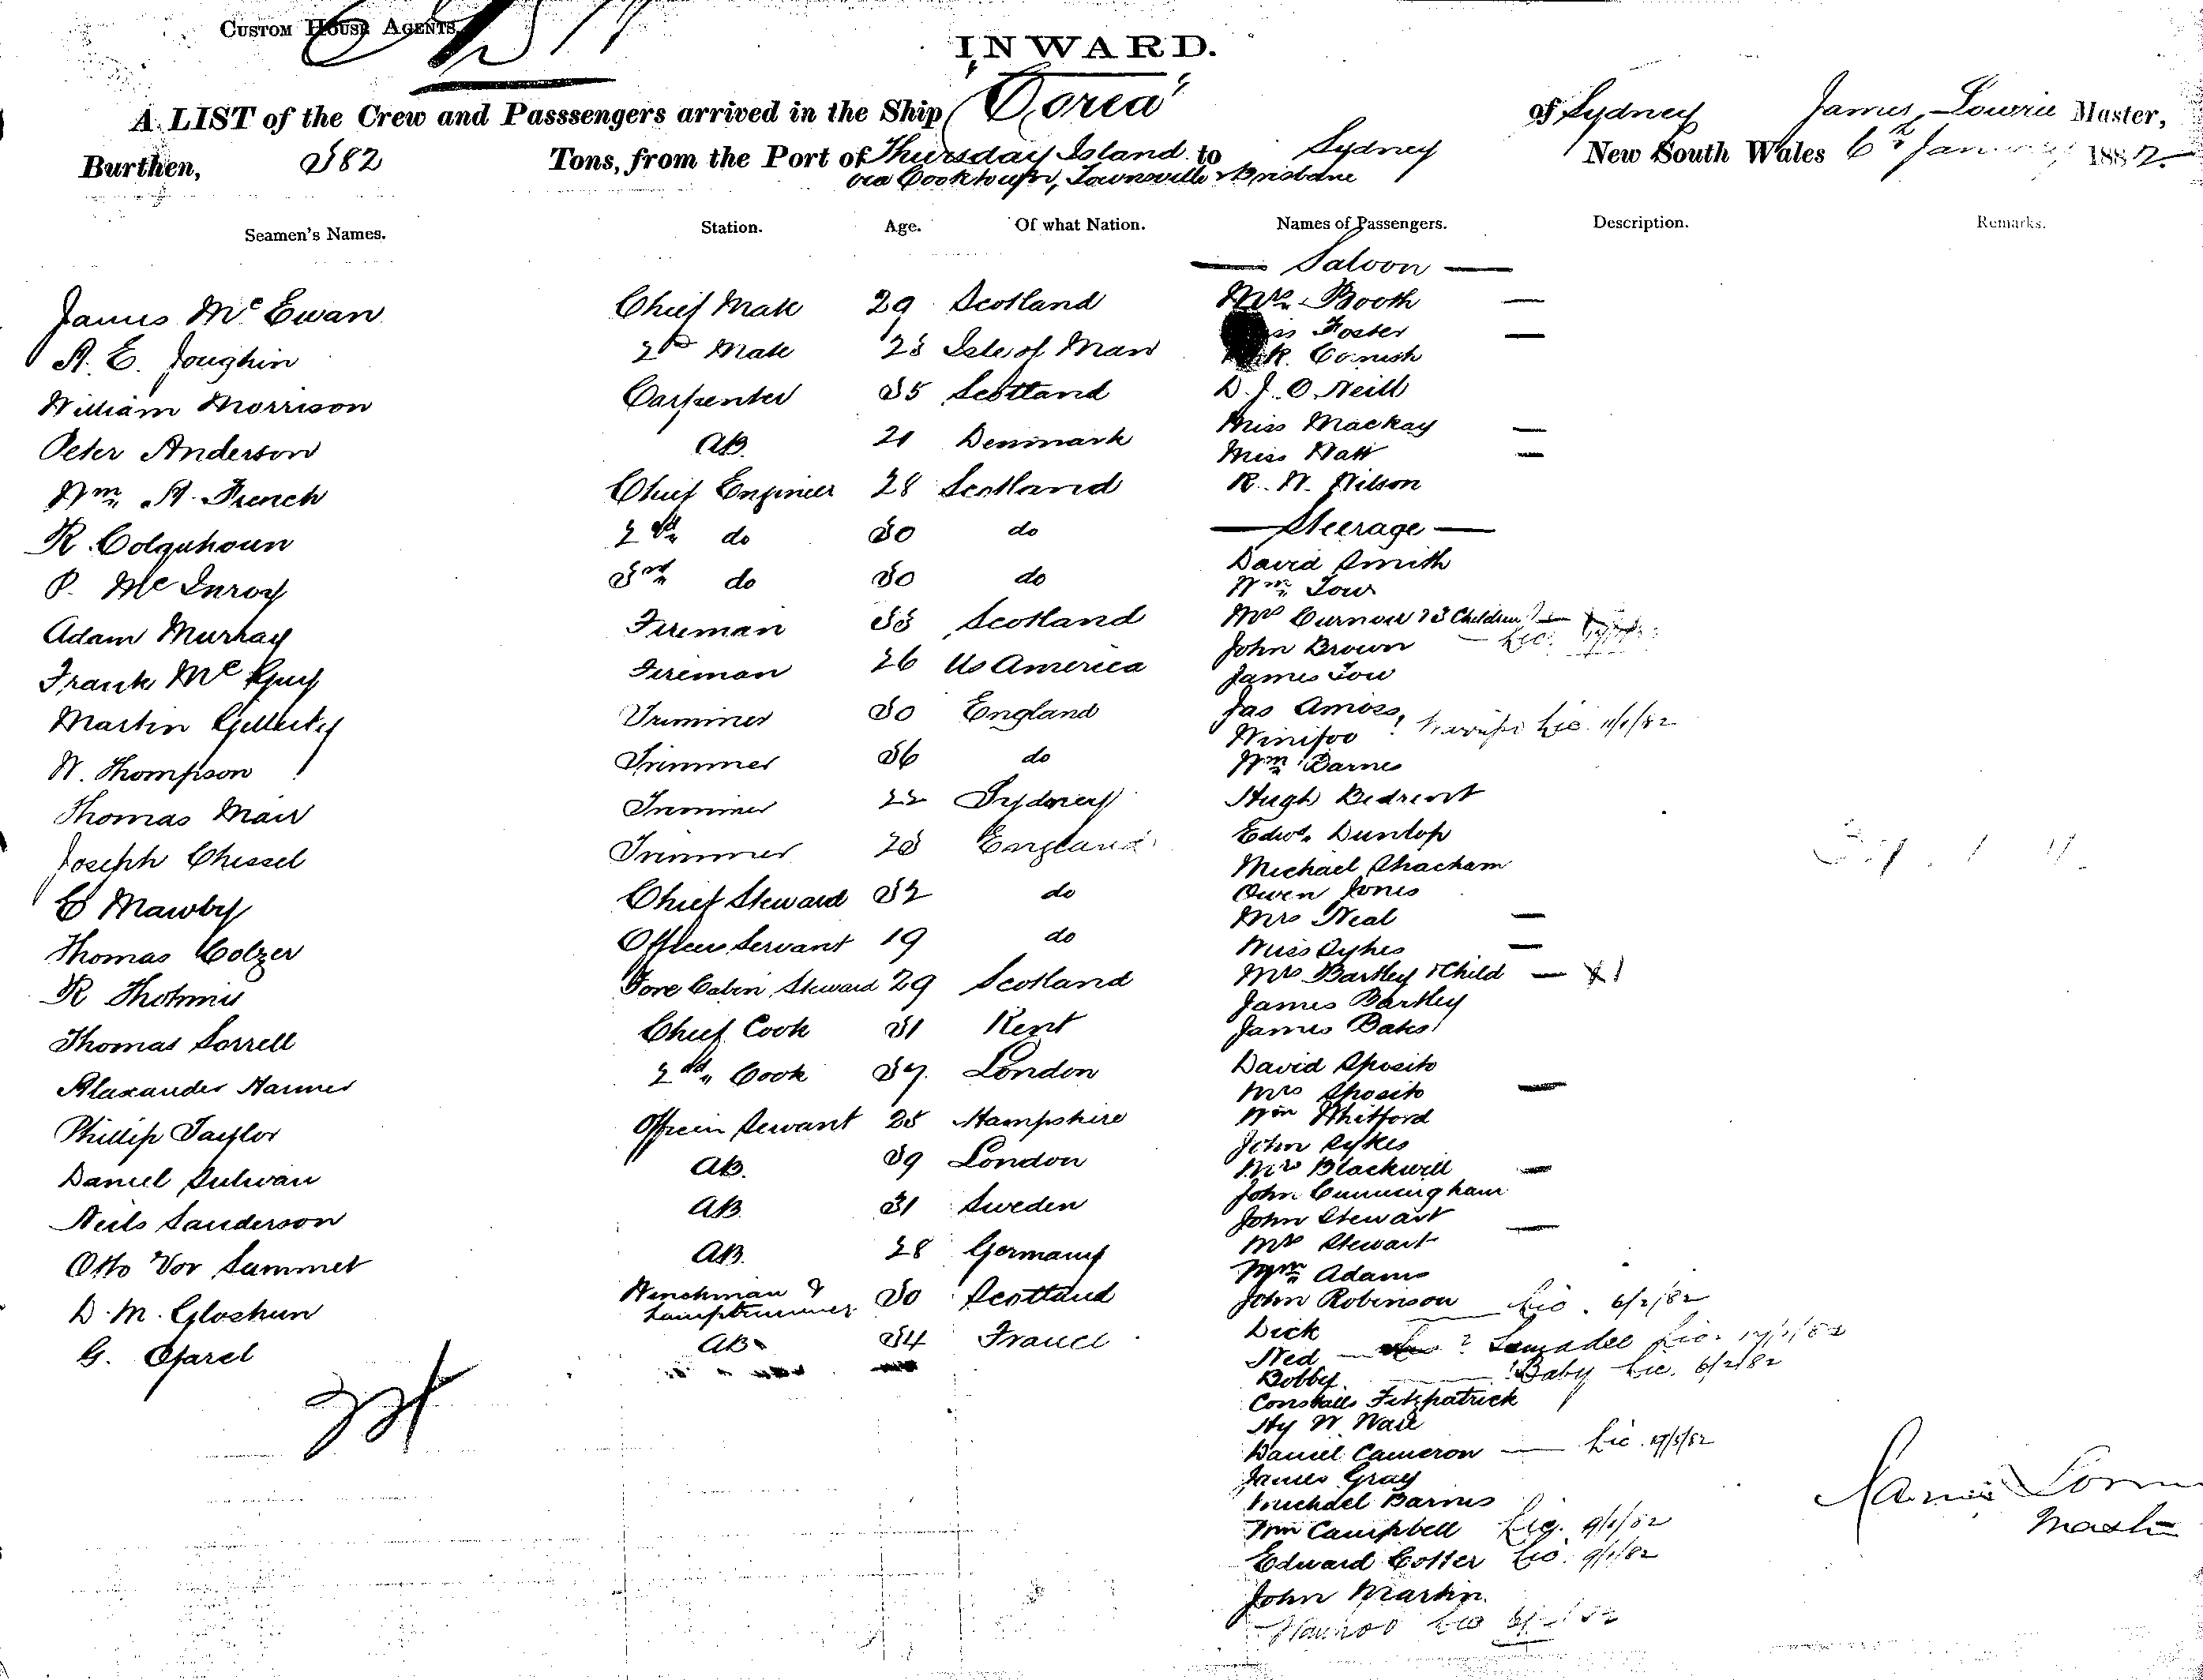 CUSTOM HOUSE AGENTS.
INWARD.
A LIST of the Crew and Passsengers arrived in the Ship "Corea" of Sydney James Lowrie Master,
Burthen, 382 Tons, from the Port of Thursday Island to Sydney New South Wales 6th January 1882
via Cooktown, Townsville & Brisbane
Seamen's Names. Station. Age. Of what Nation. Names of Passengers. Description. Remarks.
— Saloon —
James McEwan Chief Mate 29 Scotland Mrs Booth —
Foster —
A. E. Joughin 2nd Mate 23 Isle of Man Cornish
William Morrison Carpenter 35 Scotland D. J. O Neill
Miss Mackay —
Peter Anderson AB. 21 Denmark Miss Watt —
Wm A. French Chief Engineer 28 Scotland R. W. Wilson
R. Colquhoun 2nd do 30 do — Steerage —
David Smith
P. McInroy 3rd do 30 do Wm Low
Adam Murray Fireman 33 Scotland Mrs Curnow & 3 Children —
John Brown — Lic.
Frank McGuy Fireman 26 US America James Low
Martin Gillertey Trimmer 30 England Jas Amoss
Winifoo Lic. 11/1/82
W. Thompson Trimmer 36 do Wm Barnes
Thomas Mair Trimmer 22 Sydney Hugh
Edwd. Dunlop
Joseph Chessel Trimmer 23 England Michael Shacham
C Mawby Chief Steward 32 do Owen Jones
Mrs Neal —
Thomas Colzer Officers Servant 19 do Miss Sykes —
R Thomis Fore Cabin Steward 29 Scotland Mrs Bartley & Child —
James Bartley
Thomas Sorrell Chief Cook 31 Kent James Bates
Alaxander Harmer 2nd Cook 37 London David Sposito
Mrs Sposito —
Phillip Taylor Officers Servant 25 Hampshire Wm Whitford
John Sykes
Daniel Sulivan AB. 39 London Mrs Blackwell —
John Cunningham
Neils Sanderson AB 31 Sweden John Stewart
Otto Vor Sammet AB. 28 Germany Mrs Stewart —
Wm Adams
D. M. Gloshun Winchman & Lamptrimmer 30 Scotland John Robinson — Lic. 6/2/82
Dick
G. Ofarel AB. 34 France Ned — ? Lamadee Lic.
Bobby — ! Baby Lic. 6/2/82
Constable Fitzpatrick
Hy W. Ware
Daniel Cameron — Lic.
James Gray
Michael Barnes
Wm Campbell Lic. 9/1/82
Edward Cotter Lic. 9/1/82
John Martin.
James Lowrie
Master